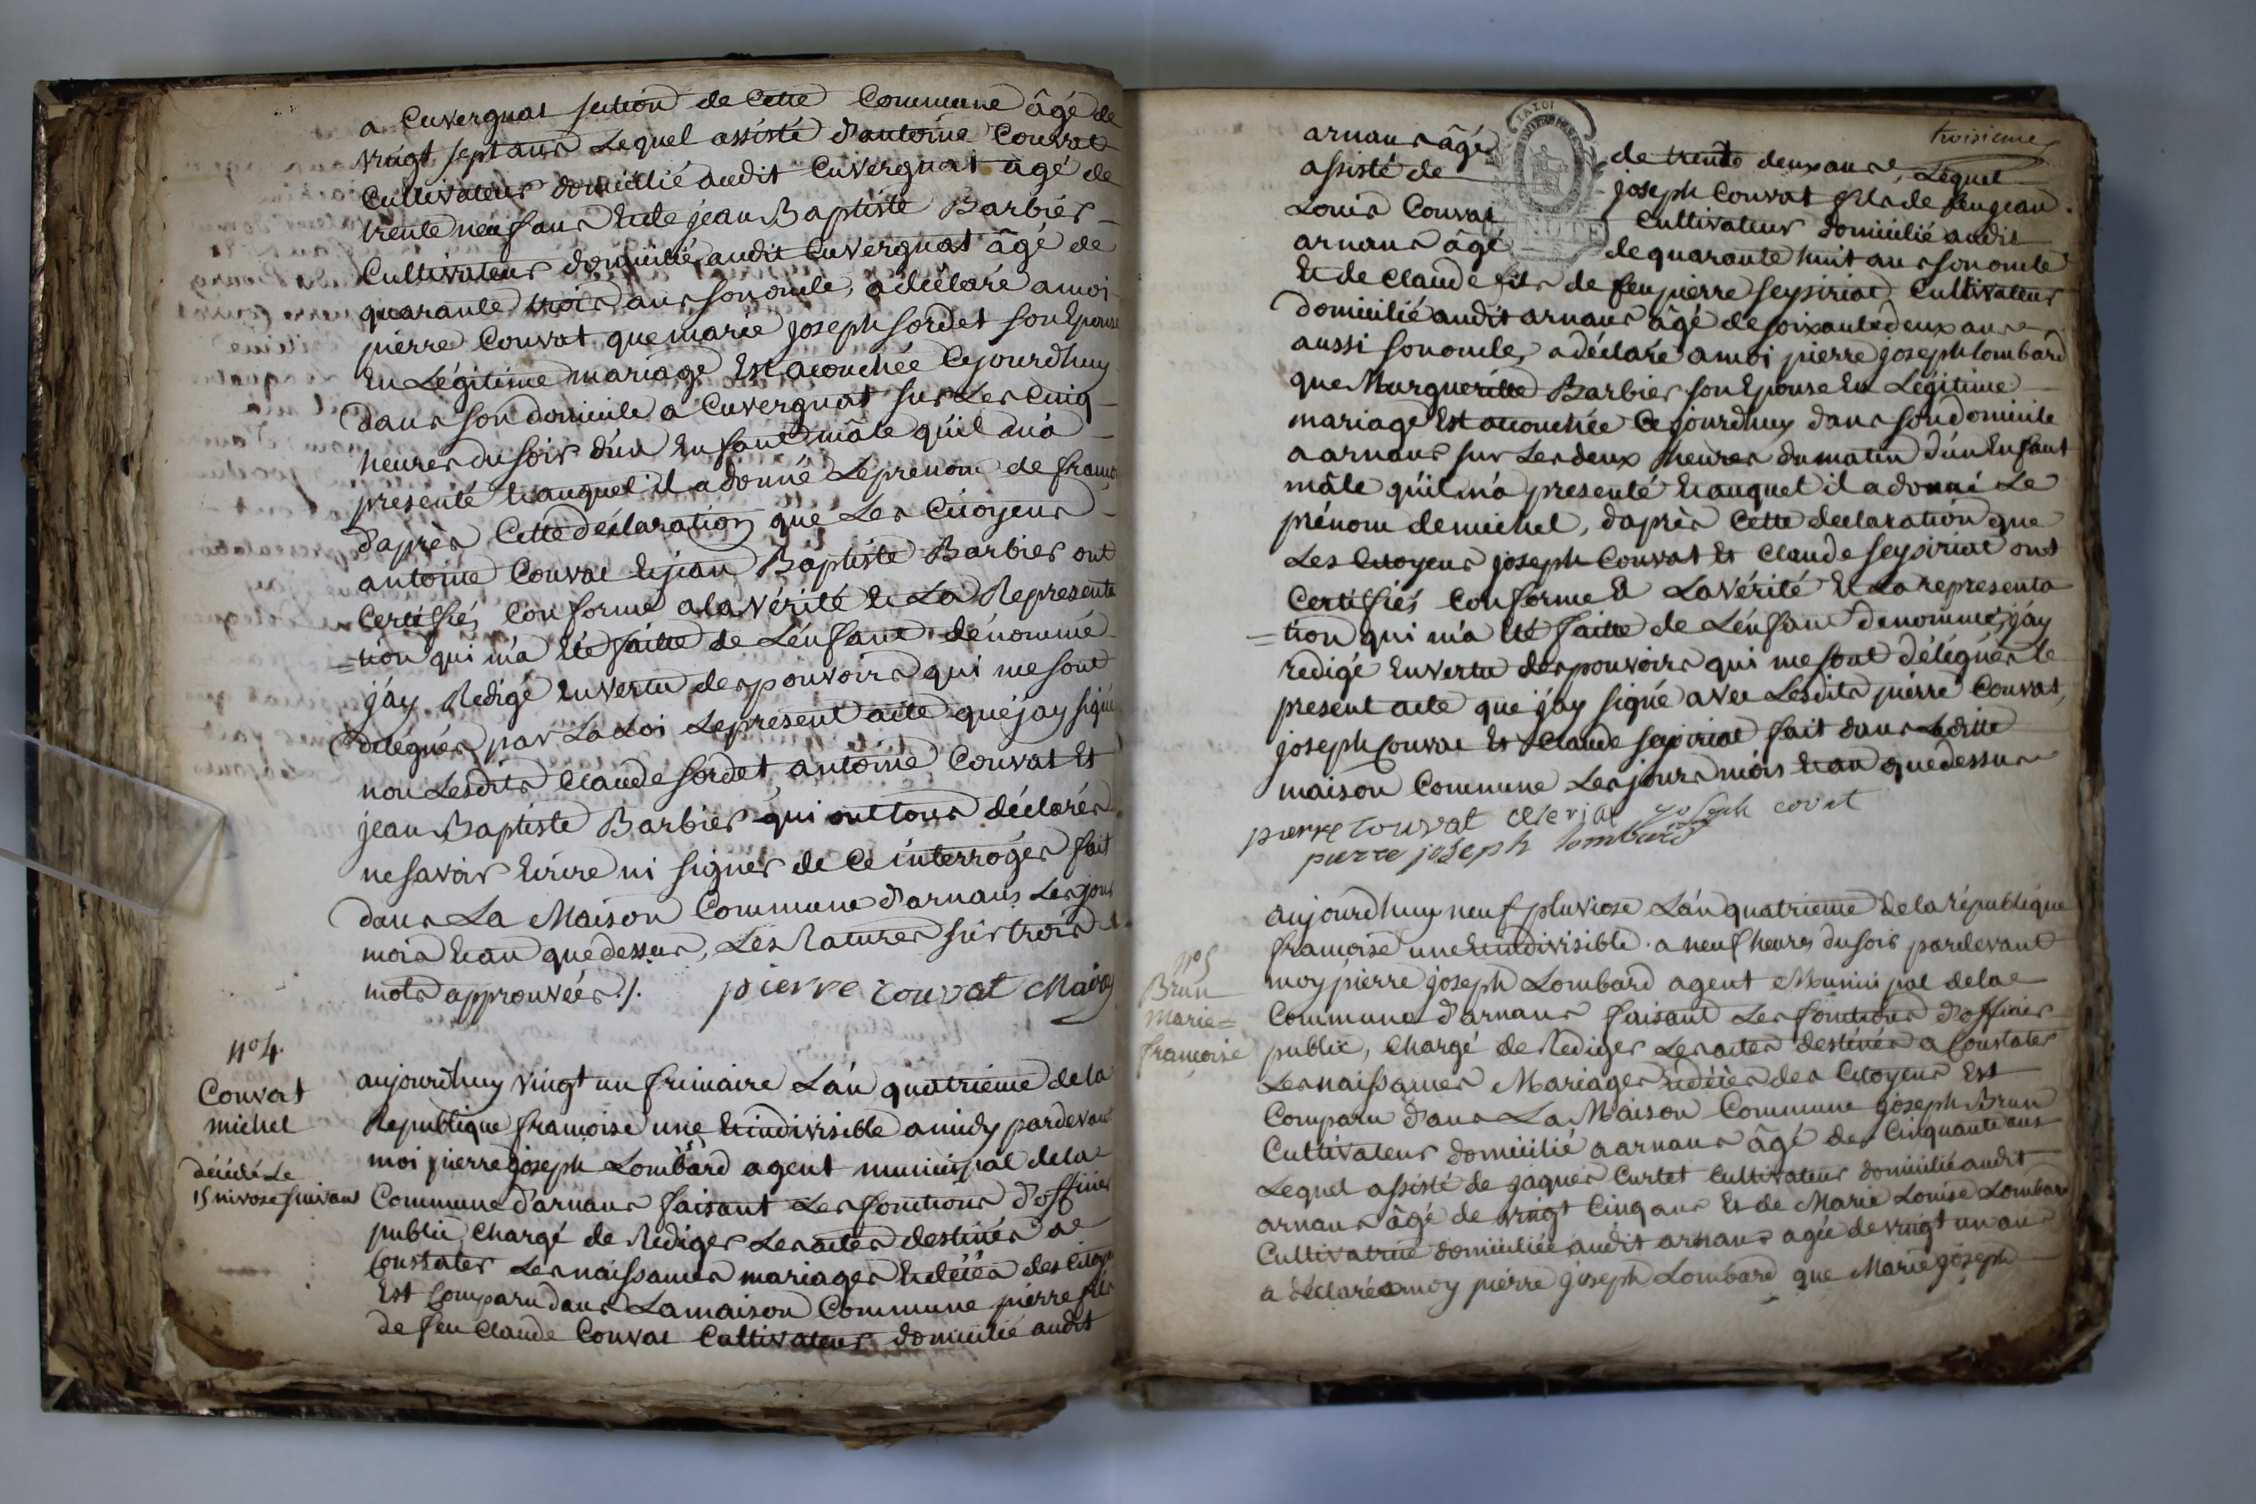 a Cuvergnat section de cette Commune âgé de
vingt sept ans Lequel assisté d'antoine Convat
Cultivateur domicilié audit Cuvergnat âgé de
trente neuf ans Et de jean Baptiste Barbier
Cultivateur domicilié audit Cuvergnat âgé de
quarante trois ans son oncle, a déclaré a moi
pierre Convat que marie joseph sordet son Epouse
En Légitime mariage Est acouchée Cejourdhuy
dans son domicile a Cuvergnat sur Les Cinq
heures du soir d'un Enfant mâle qu'il m'a
presenté Et auquel il a donné Le prenom de franç
d'après Cette déclaration que Les Citoyens
antoine Convat Et jean Baptiste Barbier ont
Certifiés Conforme a la Vérité Et La Représenta
=tion qui m'a Eté faitte de L'enfant dénommé
j'ay Redigé En vertu des pouvoirs qui me sont
délégués par La Loi Le présent acte que j'ay signé
non Lesdits Claude sordet, antoine Convat Et
jean Baptiste Barbier qui ont tous déclarés
ne savoir Ecrire ni signer de Ce interrogés fait
dans La Maison Commune d'arnans Les jour
mois Et an que dessus, Les Ratures sur trois
mots approuvées ./. pierre convat Maire
n° 4.
Convat
michel
décédé Le
15 nivose suivant
aujourdhuy vingt un frimaire L'an quatrieme de la
Republique françoise une Et indivisible a midy pardevant
moi pierre joseph Lombard agent municipal de la
Commune d'arnans faisant Les fonctions d'officier
public, Chargé de Rédiger Les actes destinés a
Constater Les naissances mariages Et décés des Citoy
Est Comparu dans La maison Commune pierre fils
de feu Claude Convat Cultivateur domicilié audit
troisieme
arnans âgé de trente deux ans, Lequel
assisté de joseph Convat fils de feu jean
Louis Convat Cultivateur domicilié audit
arnans âgé de quarante huit ans son oncle
Et de Claude fils de feu pierre seysiriat Cultivateur
domicilié audit arnans âgé de soixante deux ans
aussi son oncle, a déclaré a moi pierre joseph lombard
que Marguerite Barbier son Epouse En Légitime
mariage Est acouchée Cejourdhuy dans son domicile
a arnans sur Les deux heures du matin d'un Enfant
mâle qu'il m'a presenté Et auquel il a donné Le
prénom de michel, d'après Cette declaration que
Les Citoyens joseph Convat Et Claude seysiriat ont
Certifiés Conforme a La Vérité Et La representa
=tion qui m'a Eté faitte de L'enfant denommé, j'ay
redigé En vertu des pouvoirs qui me sont délégués le
present acte que j'ay signé avec Lesdits pierre Convat,
joseph Convat Et Claude seysiriat fait dans Laditte
maison Commune Les jours mois Et an que dessus
pierre convat joseph covat
pierre joseph lombard
n° 5
Brun
Marie=
françoise
aujourdhuy neuf pluviose L'an quatrieme de la république
françoise une Et indivisible a neuf heures du soir pardevant
moy pierre joseph Lombard agent Municipal de la
Commune d'arnans faisant Les fonctions d'officier
public, Chargé de Rediger Les actes destinés a Constater
Les naissances Mariages Et décès des Citoyens Est
Comparu dans La Maison Commune joseph Brun
Cultivateur domicilié a arnans âgé de Cinquante ans
Lequel assisté de jaques Curtet Cultivateur domicilié audit
arnans âgé de vingt Cinq ans Et de Marie Louise Lombard
Cultivatrice domiciliée audit arnans agée de vingt un ans
a déclaré a moy pierre joseph Lombard que Marie joseph